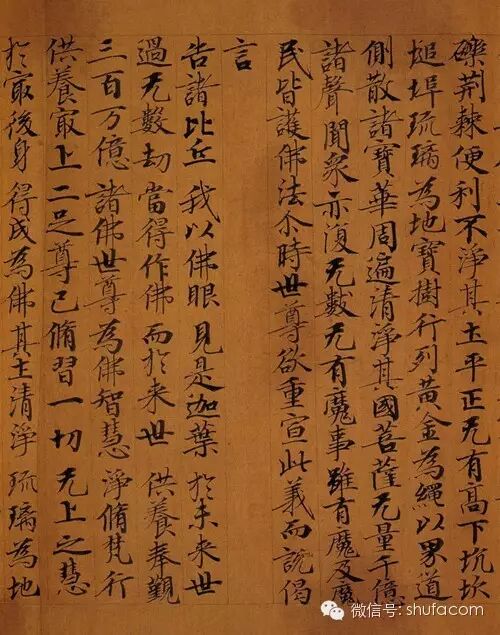 礫荆棘便利不淨其土平正无有高下坑坎
塠埠琉璃為地寶樹行列黃金為繩以界道
側散諸寶華周遍清淨其國菩薩无量千億
諸聲聞衆亦復无數无有魔事雖有魔及魔
民皆護佛法尒時世尊欲重宣此義而說偈
言
告諸比丘 我以佛眼 見是迦葉 於未来世
過无數劫 當得作佛 而於来世 供養奉覲
三百万億 諸佛世尊 為佛智慧 淨脩梵行
供養㝡上 二足尊已 脩習一切 无上之慧
於㝡後身 得成為佛 其土清淨 琉璃為地
微信号: shufacom